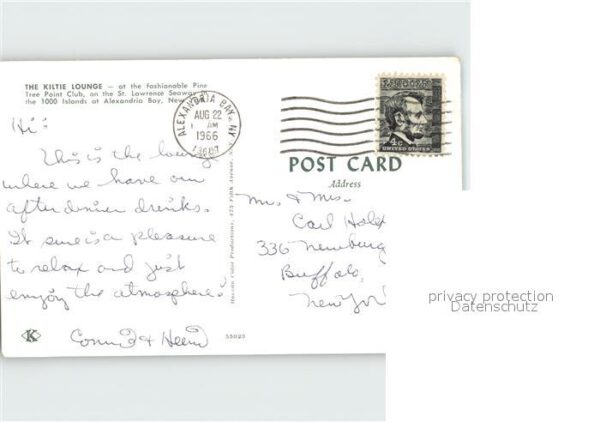 THE KILTIE LOUNGE — at the fashionable Pine
Tree Point Club, on the St. Lawrence Seaway
the 1000 Islands at Alexandria Bay, New
ALEXANDRIA BAY, NY
AUG 22
AM
1966
13607
4c
UNITED STATES
POST CARD
Address
Hi:
This is the lounge
where we have our
after dinner drinks.
It sure is a pleasure
to relax and just
enjoy the atmosphere.
Mr. & Mrs.
Carl
336 Newburg
Buffalo,
New York
Color Productions, 475 Fifth Avenue
K
55025
privacy protection
Datenschutz